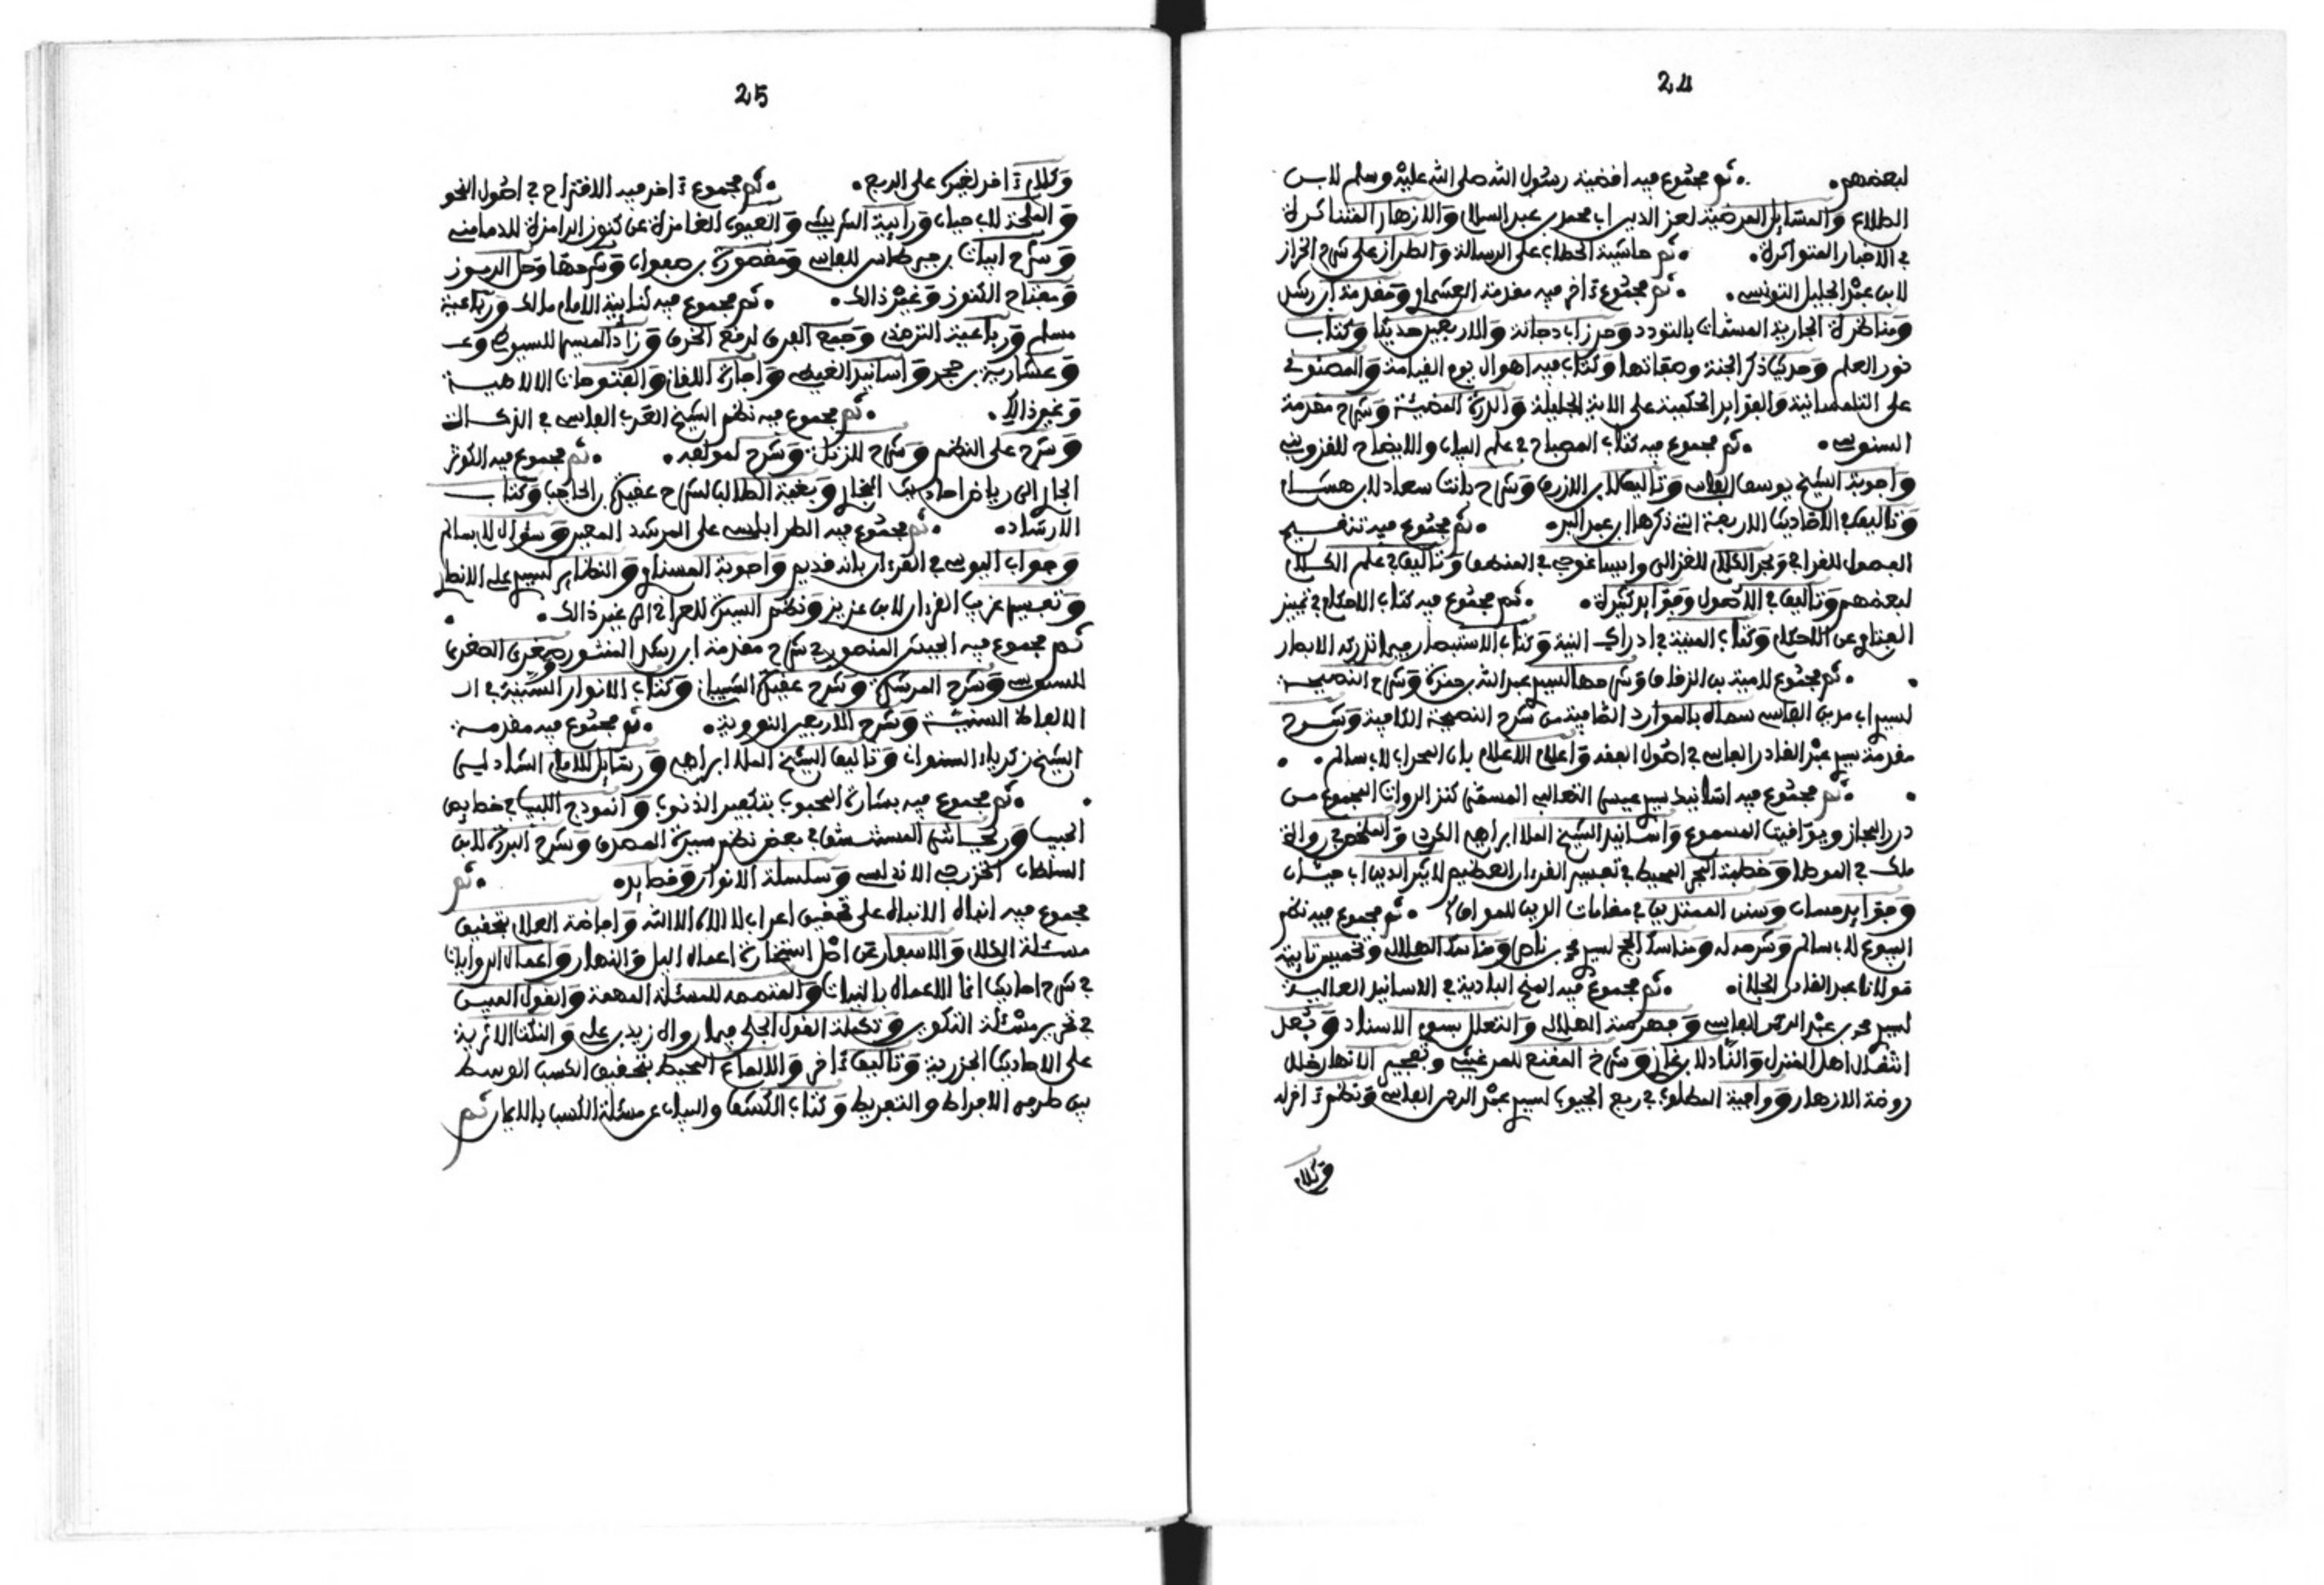 24
لبعضهم . ثم مجموع فيه اقضية رسول الله صلى الله عليه وسلم لابن
الطلاع والمسائل المرضية لعز الدين اب محمد بن عبد السلام والازهار المتناثرة
في الاخبار المتواترة . ثم حاشية الحطاب على الرسالة والطراز على شرح الخراز
لابن عبد الجليل التونسي . ثم مجموع ءاخر فيه مقدمة العشماوي ومقدمة ابن رشد
ومناظرة الجارية المسماة بالتودد وحرز اب دجانة والاربعين حديثا وكتاب
ذكر الجنة وصفاتها وكتاب فيه اهوال يوم القيامة
على التلمسانية والفوائد الحكمية على الاية الجليلة والدرة المضيئة وشرح مقدمة
السنوسي . ثم مجموع فيه كتاب المصباح في علم البيان والايضاح للقزويني
واجوبة الشيخ يوسف الفاسي وتاليف لابن الازرق وشرح بانت سعاد لابن هشام
وتاليف في الاحاديث الاربعة التي ذكرها ابن عبد البر . ثم مجموع فيه تنقيح
الفصول للقرافي ولجم الكلام للغزالي وايساغوجي في المنطق وتاليف في علم الكلام
لبعضهم وتاليف في الاصول وفوائد كثيرة . ثم مجموع فيه كتاب الاحكام في تمييز
الفتاوى عن الاحكام وكتاب المنية في ادراك النية وكتاب الاستبصار فيما تدركه الابصار
. ثم مجموع لامية بن الزقاق وشرحها لسيد عبد الله بن حمزة وشرح النصيحة
لسيد اب مدين الفاسي سماه بالموارد الصافية من شرح النصيحة الكافية وشرح
مقدمة سيد عبد القادر الفاسي في اصول الفقه واعلام الاعلام بان المحراب لاب سالم .
. ثم مجموع فيه اسانيد سيد عيسى الثعالبي المسمى كنز الرواة المجموع من
درر المجاز ويواقيت المسموع واسانيد الشيخ الملا ابراهيم الكردي والملخص في رواة
ملك في الموطا وخطبة البحر المحيط في تفسير القرءان العظيم لاثير الدين اب حيان
وفوائد حسان وسنن المهتدين في مقامات الدين للمواق . ثم مجموع فيه نظم
البيوع لاب سالم وشرحه له ومناسك الحج لسيد محمد بن ناصر ومناسك الهلالي وتخميس تايية
مولانا عبد القادر الجيلاني . ثم مجموع فيه المنح البادية في الاسانيد العالية
لسيد محمد بن عبد الرحمن الفاسي وفهرسة الهلالي والتعلل برسوم الاسناد
انتقال اهل المنزل والناد لابن غازي وشرح المقنع للمرغيثي وتفجير الانهار خلال
روضة الازهار وواجبة المطلوب في ربع الجيوب لسيد عبد الرحمن الفاسي ونظم ءاخر له
وكلام
25
وكلام ءاخر لغيره على الربع . ثم مجموع ءاخر فيه الاقتراح في اصول النحو
والملحة لاب حيان ورايية الشريشي والعيون الغامزة عن كنوز الرامزة للدمامني
وشرح ابيات للفاسي ومقصورة بن صفوان وشرحها وحل الرموز
ومفتاح الكنوز وغير ذالك . ثم مجموع فيه ثنايية الامام مالك ورباعية
مسلم ورباعية الترمذي وجمع الفرق لرفع الخرق وزاد المسير للسيوطي
وعشارية بن حجر واسانيد الغيطي واجازة اللقاني والفتوحات الالاهية
وغير ذالك . ثم مجموع فيه نظم الشيخ العربي الفاسي في الزكاة
وشرح على النظم وشرح للزبدة وشرح لمولفه . ثم مجموع فيه الكوثر
الجاري الى رياض احاديث البخاري وبغية الطالب لشرح عقيدة بن الحاجب وكتاب
الارشاد . ثم مجموع فيه الطرابلسي على المرشد المعين وسؤال لاب سالم
وجواب اليوسي في القرءان بانه قديم واجوبة المسناوي
وتفسير غريب القرءان لابن عزيز ونظم السيرة للعراقي الى غير ذالك .
ثم مجموع فيه الجيش المنصور في شرح مقدمة ابن رشد المنشور وصغرى الصغرى
للسنوسي وشرح المرشدة وشرح عقيدة الشيباني وكتاب الانوار السنية في ال
الالفاظ السنية وشرح الاربعين النووية . ثم مجموع فيه مقدمة
الشيخ زكرياء السنواني وتاليف الشيخ الملا ابراهيم ورسائل للامام الشاذلي
. ثم مجموع فيه بشارة المحبوب بتكفير الذنوب وانموذج اللبيب في خصايص
الحبيب المستنشق في بعض نظم سيرة المصطفى وشرح البردة لابن
السلطان الخزرجي الاندلسي وسلسلة الانوار وقصايد . ثم
مجموع فيه انباه الانباه على تحقيق اعراب لا الاه الا الله وافاضة العلام بتحقيق
مسئلة الكلام والاسفار عن اصل استخارة اعمال اليل والنهار واعمال الروايات
في شرح احاديث انما الاعمال بالنيات والمتممة للمسئلة المهمة والقول المبين
في تحرير مسئلة التكوين وتكملة القول الجلي
على الاحاديث الجزرية وتاليف ءاخر والالماع المحيط بتحقيق الكسب الوسط
بين طرفي الافراط والتفريط وكتاب الكشف والبيان عن مسئلة الكسب بالايجاز ثم